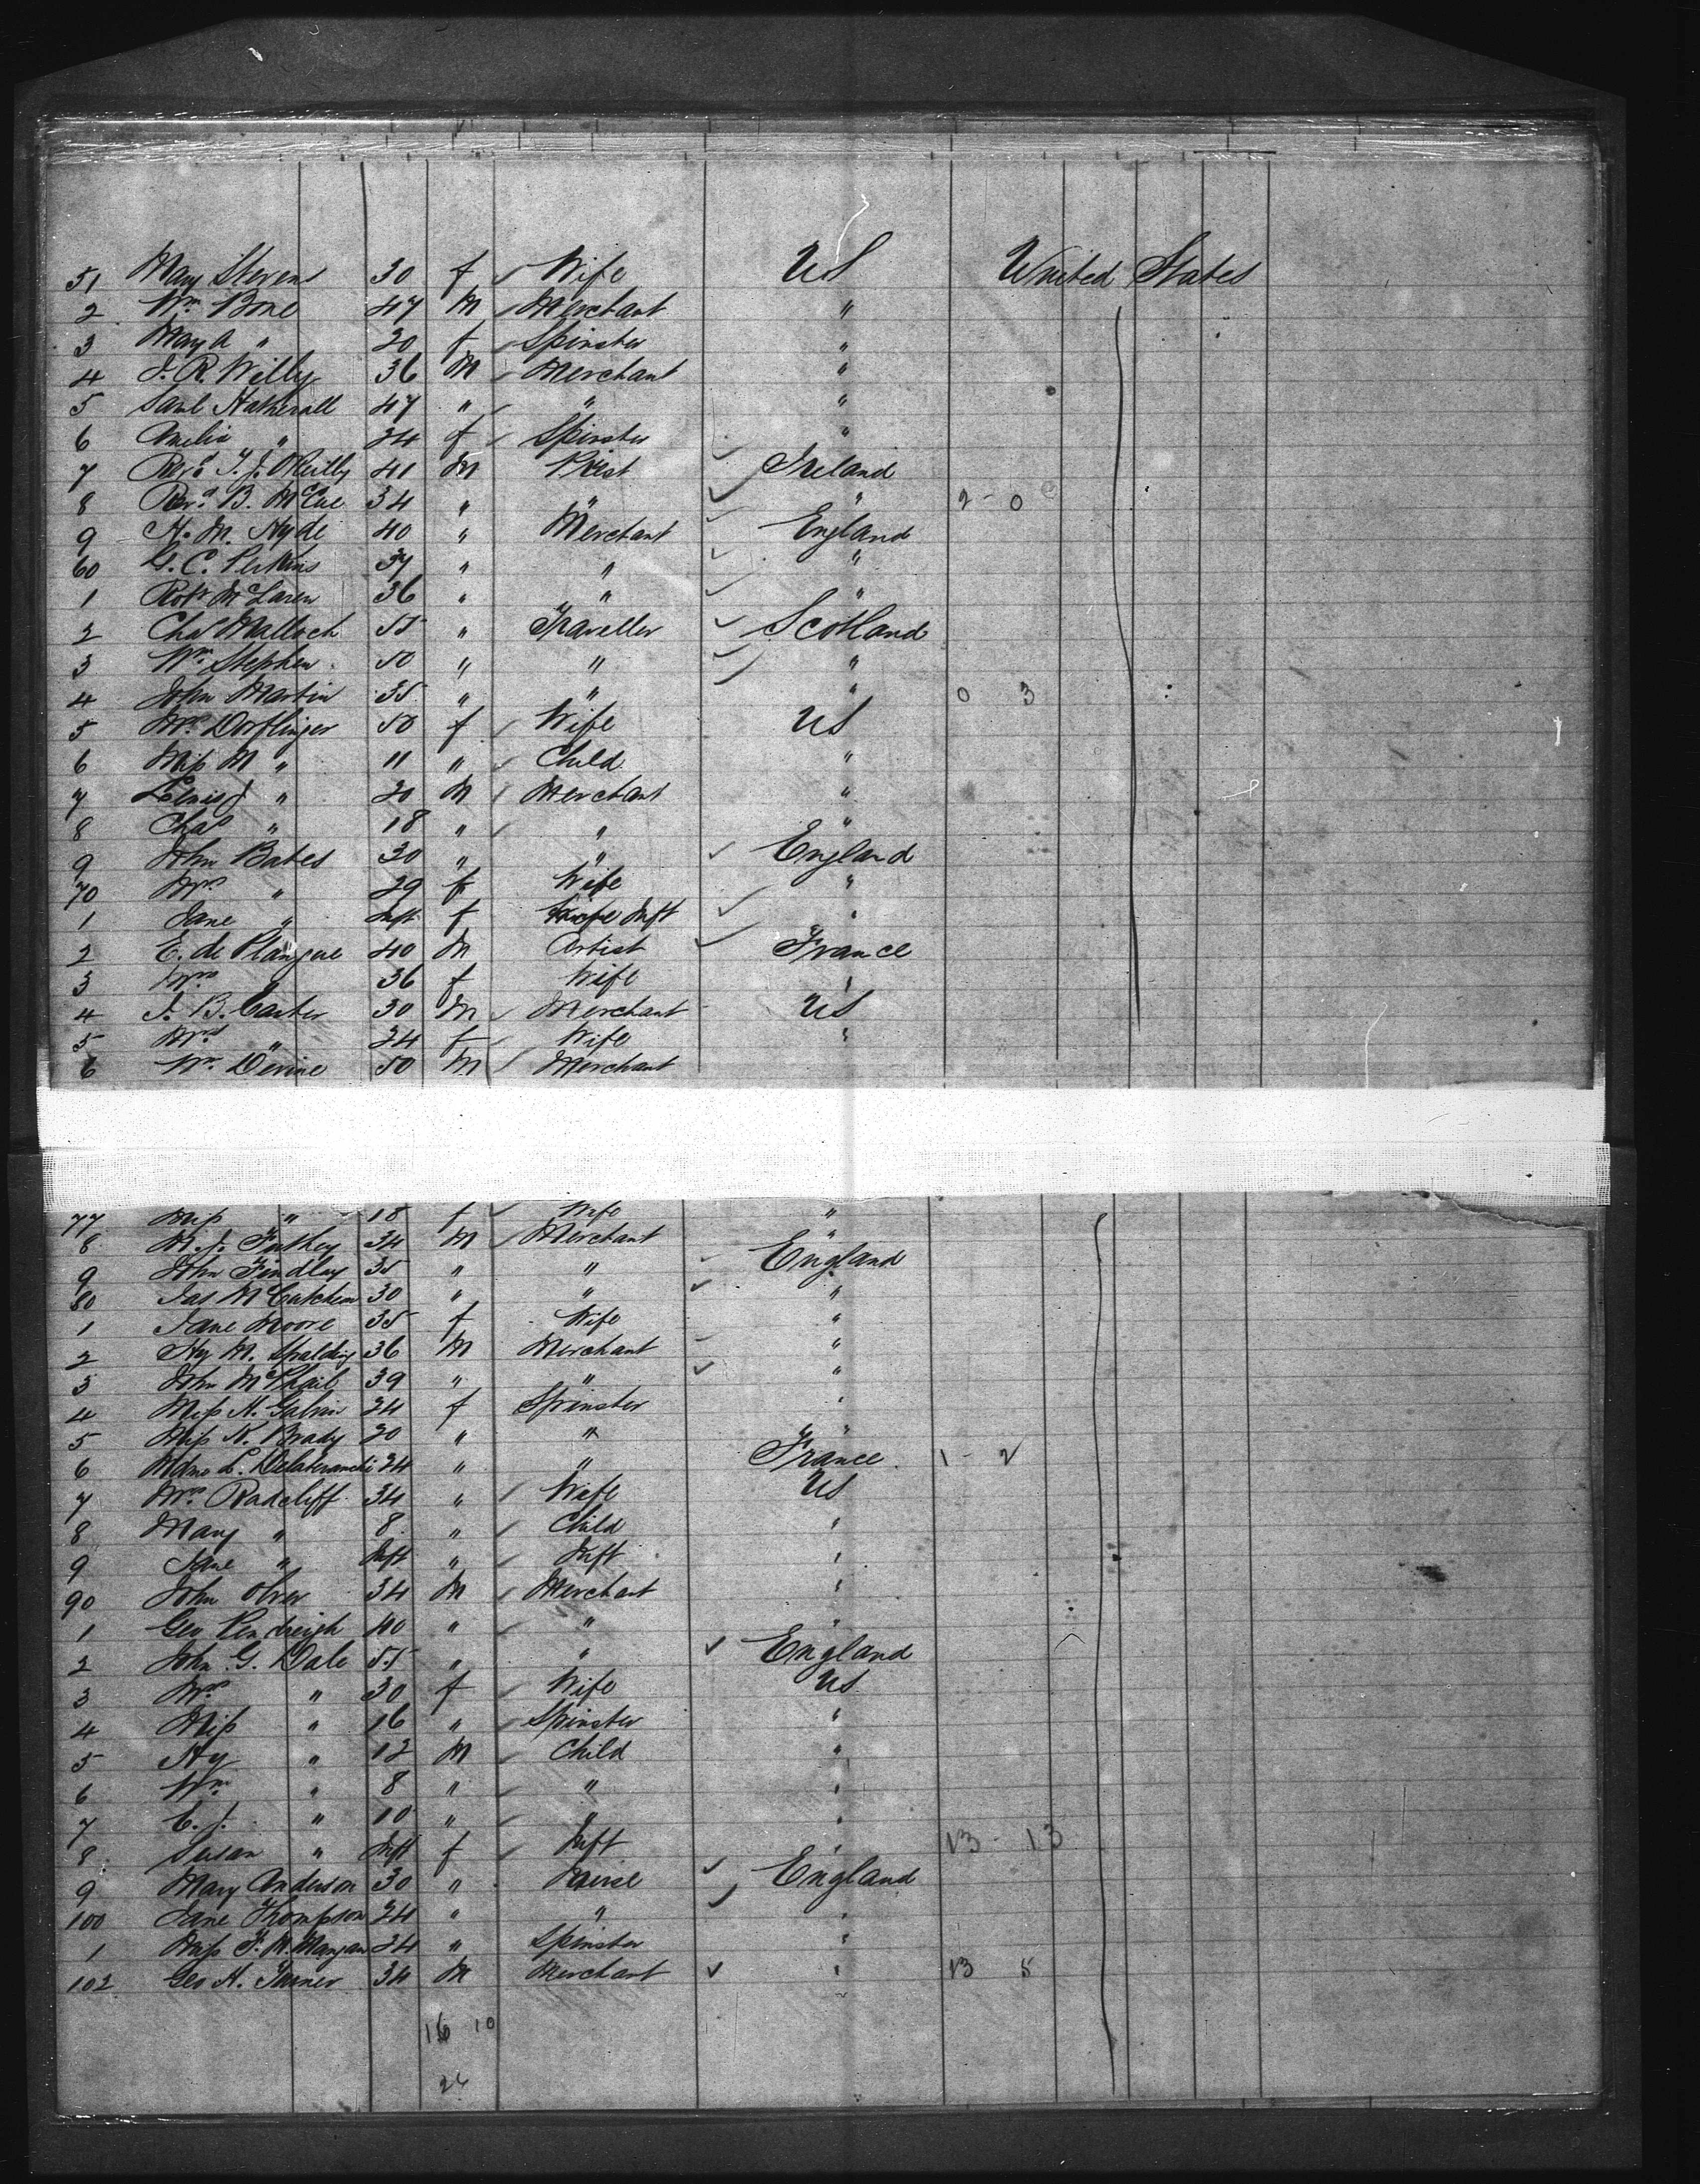 51 Mary Stevens 30 f Wife US United States
2 Wm. Bone 47 M Merchant "
3 Mary A " 20 f Spinster "
4 J. R. Willy 36 M Merchant "
5 Saml Hatherall 47 " " "
6 Amelia " 24 f Spinster "
7 Revd. T. J. OReilly 41 M Priest Ireland
8 Revd. B. McCue 34 " " " 2 - 0
9 H. M. Hyde 40 " Merchant England
60 G. C. Perkins 37 " " "
1 Robt McLaren 36 " " "
2 Chas Malloch 55 " Traveller Scotland
3 Wm. Stephen 50 " " "
4 John Martin 35 " " " 0 3
5 Mrs Dorflinger 50 f Wife US
6 Miss M " 11 " Child "
7 Louis J " 20 M Merchant "
8 Chas " 18 " " "
9 John Bates 30 " " England
70 Mrs " 29 f Wife "
1 Jane " Inft f Inft "
2 E. de Planque 40 M Artist France
3 Mrs " 36 f Wife "
4 J. B. Carter 30 M Merchant US
5 Mrs " 24 f Wife "
6 Wm. Devine 50 M Merchant
77 Miss " 18 f Wife "
8 M. J. Futhey 34 M Merchant "
9 John Findlay 35 " " England
80 Jas McCutcheon 30 " " "
1 Jane Moore 35 f Wife "
2 Hy M. Spalding 36 M Merchant "
3 John McPhail 39 " " "
4 Miss H. Galvin 24 f Spinster "
5 Miss K. Brady 20 " " "
6 Mdme L. 24 " " France 1 - 2
7 Mrs Radcliff 34 " Wife US
8 Mary " 8 " Child "
9 Jane " Inft " Inft "
90 John Olver 34 M Merchant "
1 Geo Pendreigh 40 " " "
2 John G. Dale 55 " " England
3 Mrs " 30 f Wife US
4 Miss " 16 " Spinster "
5 Hy " 12 M Child "
6 Wm. " 8 " " "
7 C. J. " 10 " " "
8 Susan " Inft f Inft " 13 - 13
9 Mary Anderson 30 " Nurse England
100 Jane Thompson 24 " " "
1 Miss F. M. Mangan 24 " Spinster "
102 Geo H. Turner 34 M Merchant " 13 5
16 10
26